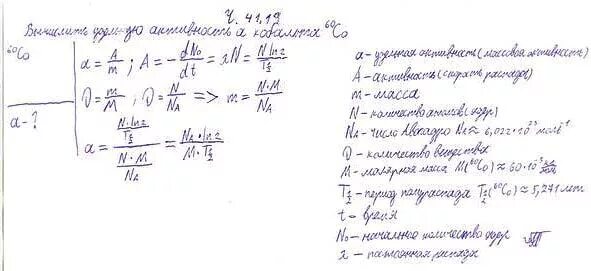 Ч. 41.19
Вычислить удельную активность a кобальта ⁶⁰Co
⁶⁰Co
a - ?
a = A/m ; A = -dN₀/dt = λN = N ln2/T½
ν = m/M ; ν = N/N_A => m = N·M/N_A
a = (N·ln2/T½)/(N·M/N_A) = N_A·ln2/(M·T½)
a - удельная активность (массовая активность)
A - активность (скорость распада)
m - масса
N - количество атомов (ядер)
N_A - число Авогадро N_A ≈ 6,022·10²³ моль⁻¹
ν - количество вещества
M - молярная масса M(⁶⁰Co) ≈ 60·10⁻³ кг/моль
T½ - период полураспада T½(⁶⁰Co) ≈ 5,271 лет
t - время
N₀ - начальное количество ядер
λ - постоянная распада